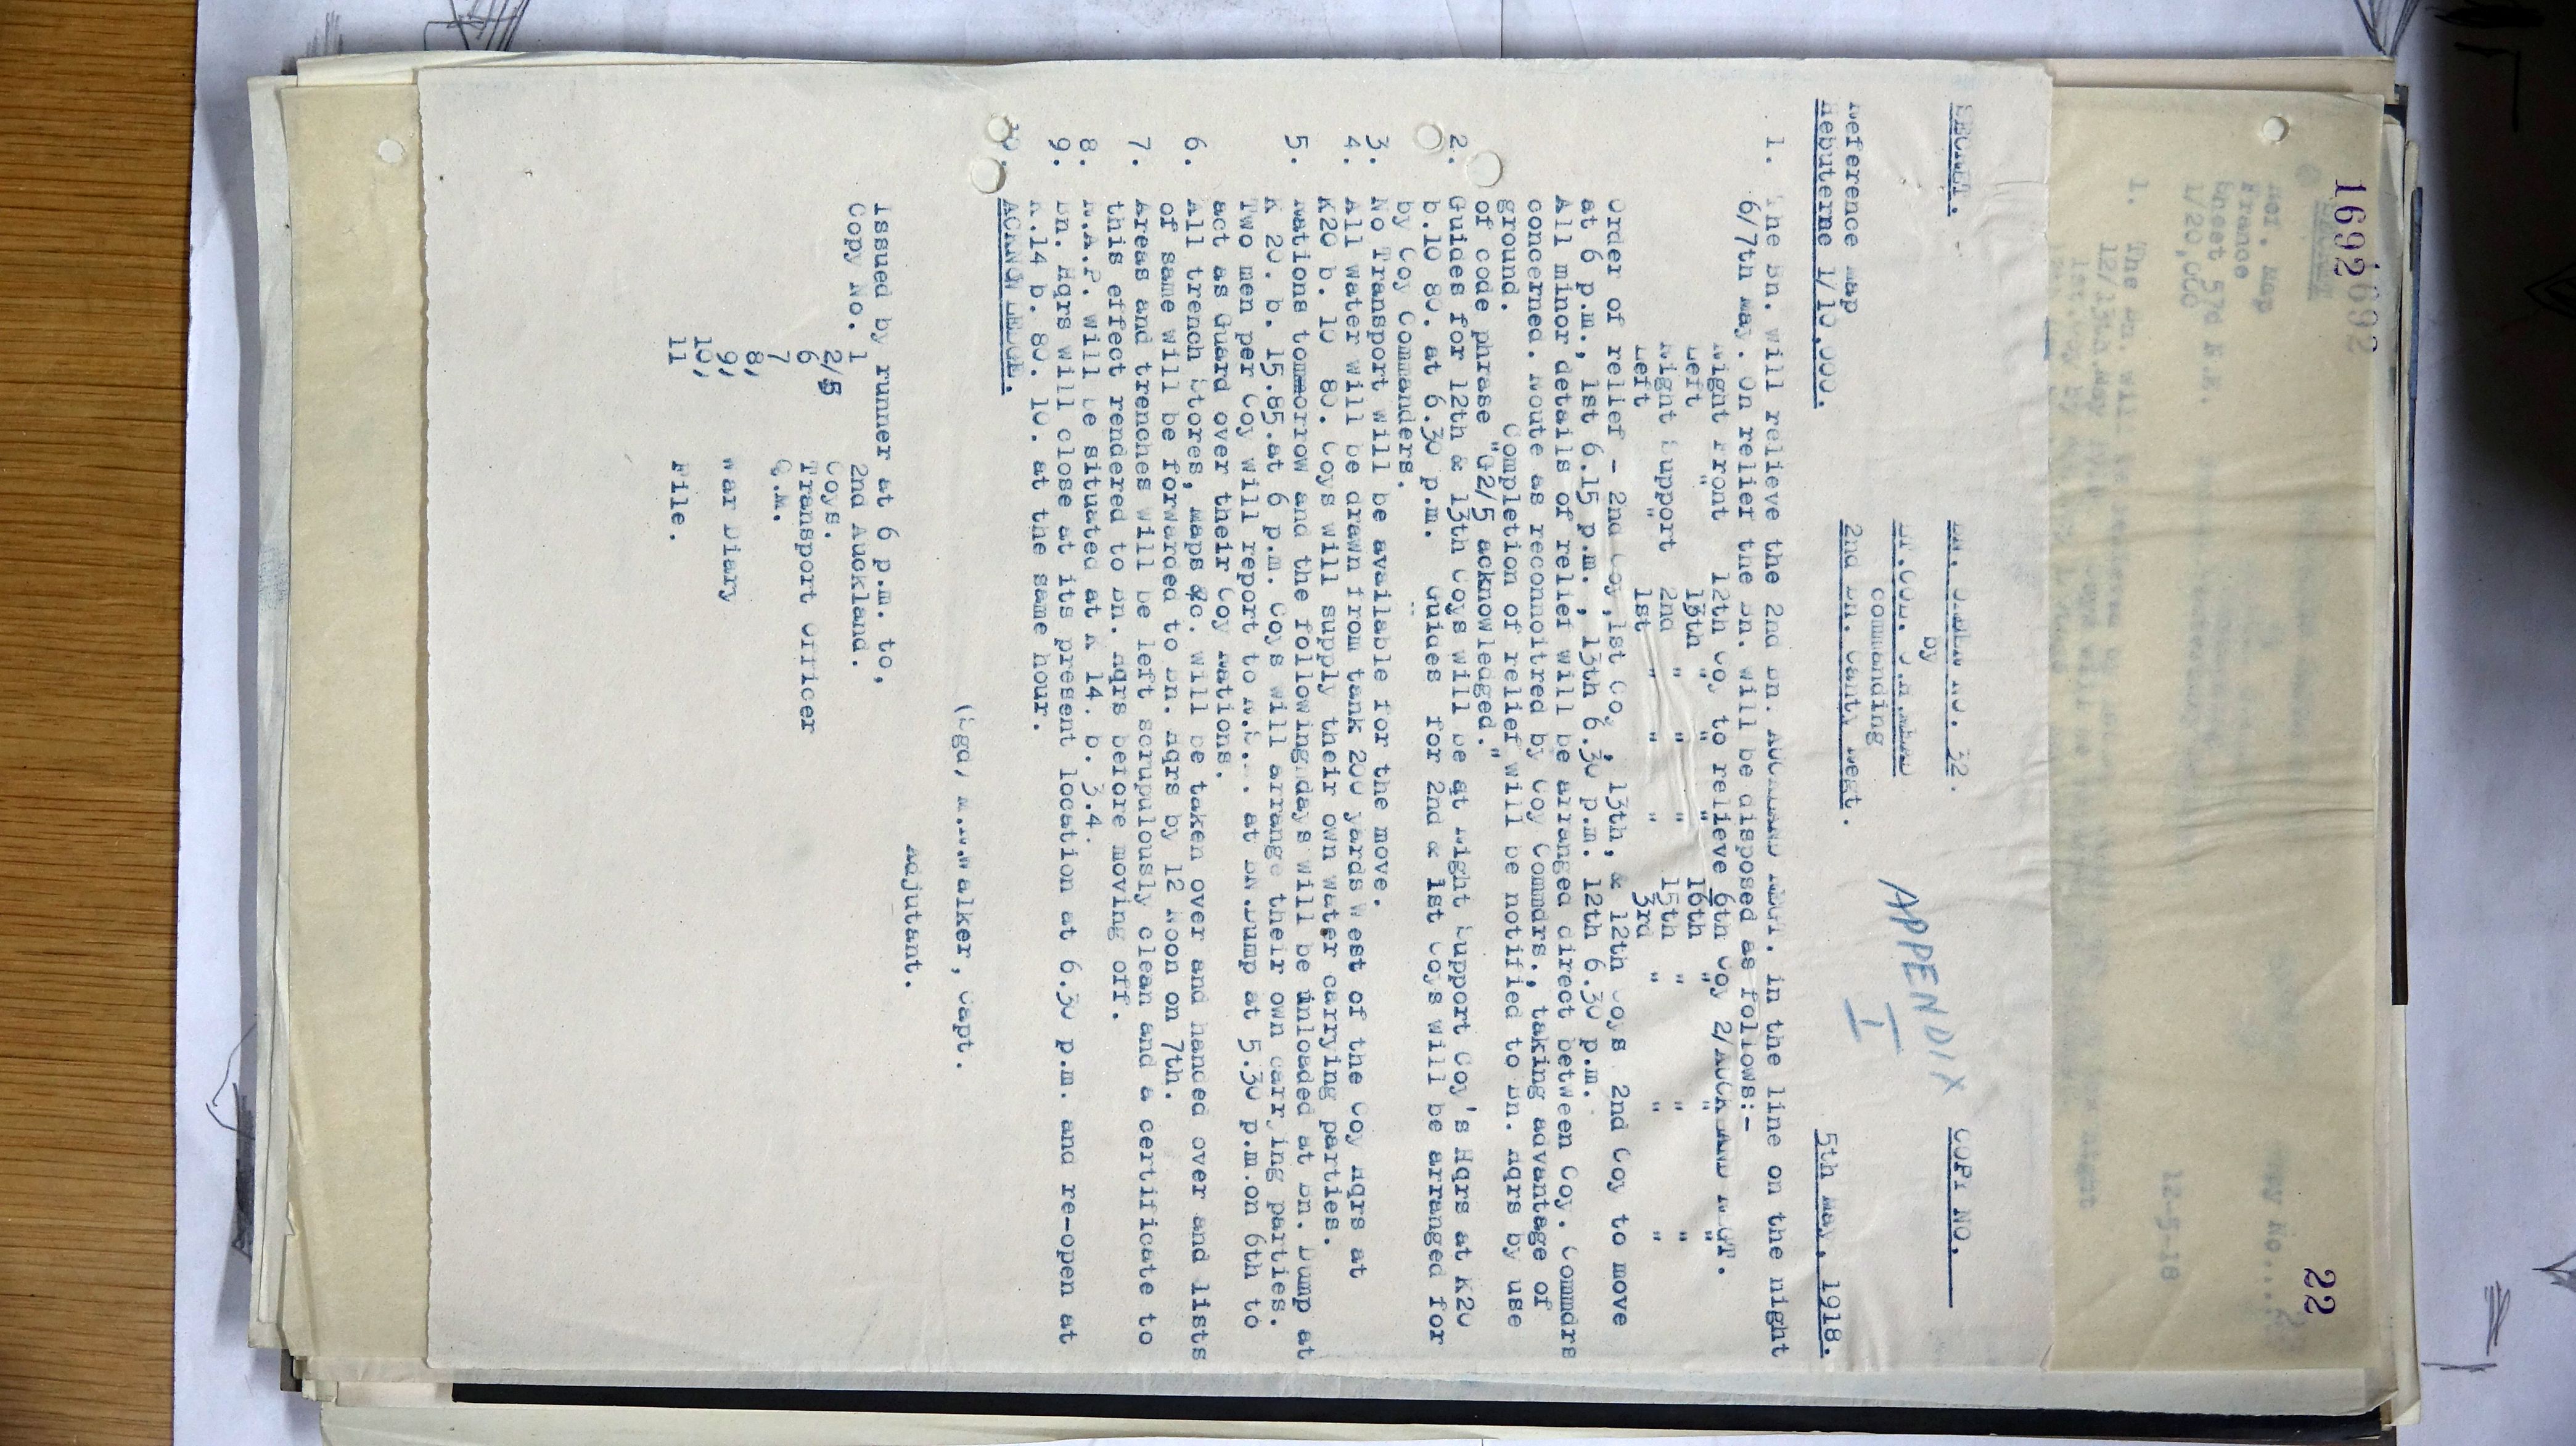 1692
22
SECRET.
BN. ORDER NO. 32.
COPY NO.
by
commanding
2nd Bn. Canty Regt.
APPENDIX
I
Reference Map
Hebuterne 1/10,000.
5th May, 1918.
1. The Bn. will relieve the 2nd Bn. AUCKLAND REGT. in the line on the night
6/7th May. On relief the Bn. will be disposed as follows:-
Right Front 12th Coy to relieve 6th Coy 2/AUCK AND REGT.
Left " 13th " " " 16th " " "
Right Support 2nd " " " 15th " " "
Left " 1st " " " 3rd " " "
Order of relief - 2nd Coy, 1st Coy, 13th, & 12th Coys 2nd Coy to move
at 6 p.m., 1st 6.15 p.m., 13th 6.30 p.m. 12th 6.30 p.m.
All minor details of relief will be arranged direct between Coy. Commdrs
concerned. Route as reconnoitred by Coy Commdrs., taking advantage of
ground. Completion of relief will be notified to Bn. Hqrs by use
of code phrase "G2/5 acknowledged."
2. Guides for 12th & 13th Coys will be at Right Support Coy's Hqrs at K20
b.10 80. at 6.30 p.m. Guides for 2nd & 1st Coys will be arranged for
by Coy Commanders.
3. No Transport will be available for the move.
4. All water will be drawn from tank 200 yards West of the Coy Hqrs at
K20 b. 10 80. Coys will supply their own water carrying parties.
5. Rations tommorrow and the following days will be unloaded at Bn. Dump at
K 20. b. 15.85.at 6 p.m. Coys will arrange their own carrying parties.
Two men per Coy will report to at Bn.Dump at 5.30 p.m.on 6th to
act as Guard over their Coy Rations.
6. All trench Stores, Maps &c. will be taken over and handed over and lists
of same will be forwarded to Bn. Hqrs by 12 Noon on 7th.
7. Areas and trenches will be left scrupulously clean and a certificate to
this effect rendered to Bn. Hqrs before moving off.
8. R.A.P. will be situated at K 14. b. 3.4.
9. Bn. Hqrs will close at its present location at 6.30 p.m. and re-open at
K.14 b. 80. 10. at the same hour.
10. ACKNOWLEDGE.
(Sgd) Walker, Capt.
Adjutant.
Issued by runner at 6 p.m. to,
Copy No. 1 2nd Auckland.
2/5 Coys.
6 Transport Officer
7 Q.M.
8,
9, War Diary
10,
11 File.
Ref. Map
France
Sheet 57d N.E.
1/20,000
12-5-18